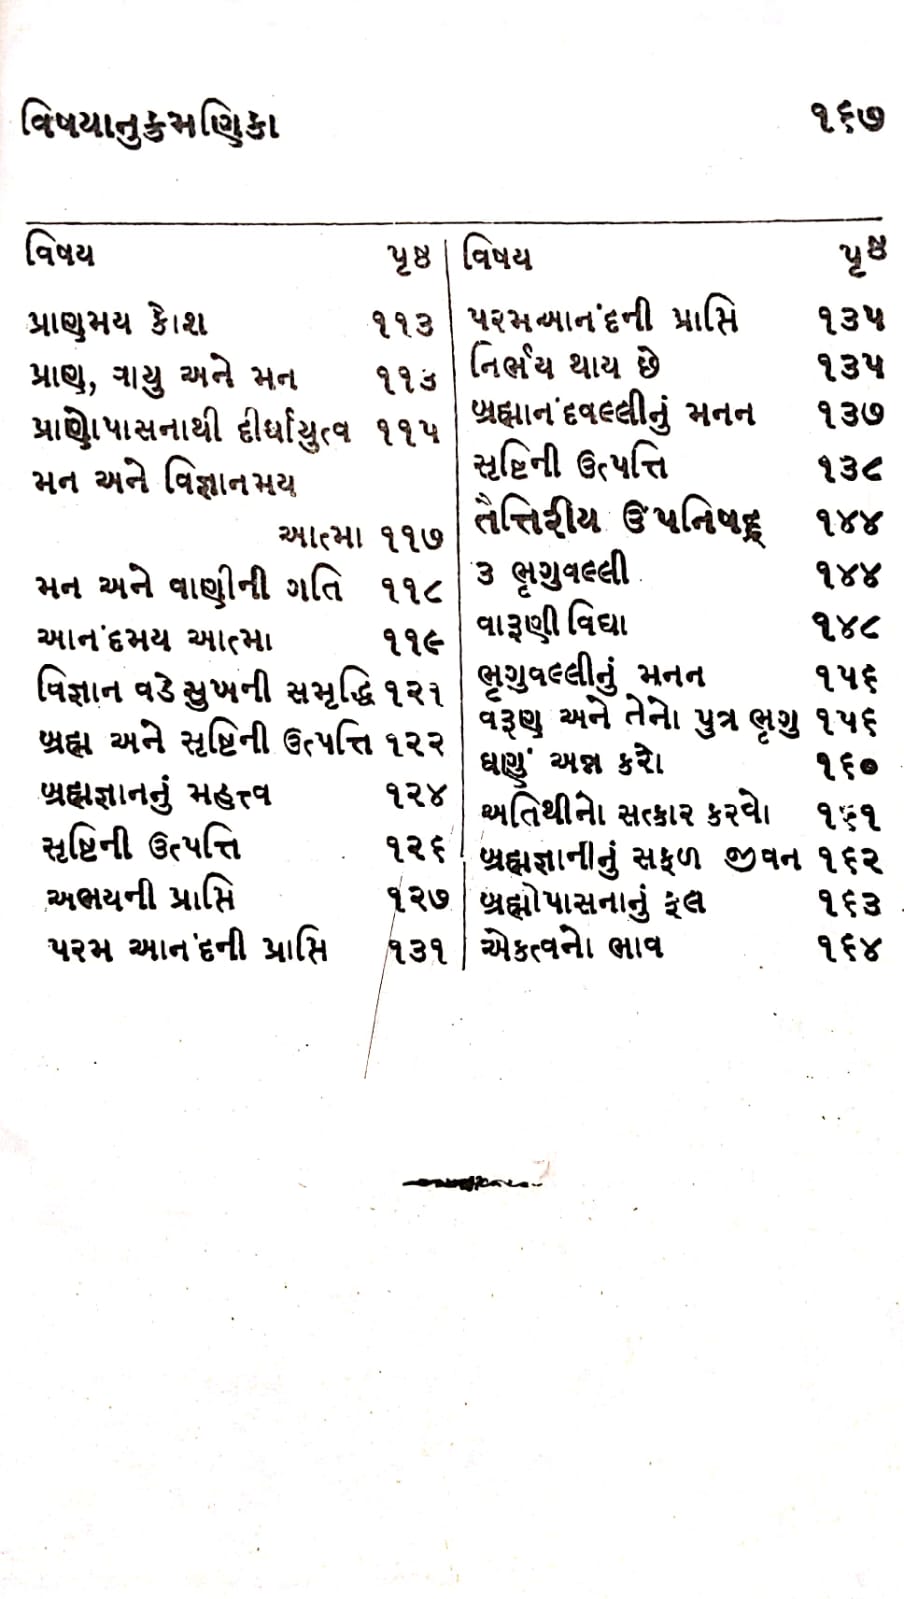 વિષયાનુક્રમણિકા ૧૬૭
વિષય પૃષ્ઠ
પ્રાણમય કોશ ૧૧૩
પ્રાણ, વાયુ અને મન ૧૧૩
પ્રાણોપાસનાથી દીર્ઘાયુત્વ ૧૧૫
મન અને વિજ્ઞાનમય
આત્મા ૧૧૭
મન અને વાણીની ગતિ ૧૧૮
આનંદમય આત્મા ૧૧૯
વિજ્ઞાન વડે સુખની સમૃદ્ધિ ૧૨૧
બ્રહ્મ અને સૃષ્ટિની ઉત્પત્તિ ૧૨૨
બ્રહ્મજ્ઞાનનું મહત્ત્વ ૧૨૪
સૃષ્ટિની ઉત્પત્તિ ૧૨૬
અભયની પ્રાપ્તિ ૧૨૭
પરમ આનંદની પ્રાપ્તિ ૧૩૧
વિષય પૃષ્ઠ
પરમઆનંદની પ્રાપ્તિ ૧૩૫
નિર્ભય થાય છે ૧૩૫
બ્રહ્માનંદવલ્લીનું મનન ૧૩૭
સૃષ્ટિની ઉત્પત્તિ ૧૩૮
તૈત્તિરીય ઉપનિષદ્ ૧૪૪
૩ ભૃગુવલ્લી ૧૪૪
વારૂણી વિદ્યા ૧૪૮
ભૃગુવલ્લીનું મનન ૧૫૬
વરૂણ અને તેનો પુત્ર ભૃગુ ૧૫૬
ઘણું અન્ન કરો ૧૬૦
અતિથીનો સત્કાર કરવો ૧૬૧
બ્રહ્મજ્ઞાનીનું સફળ જીવન ૧૬૨
બ્રહ્મોપાસનાનું ફલ ૧૬૩
એકત્વનો ભાવ ૧૬૪